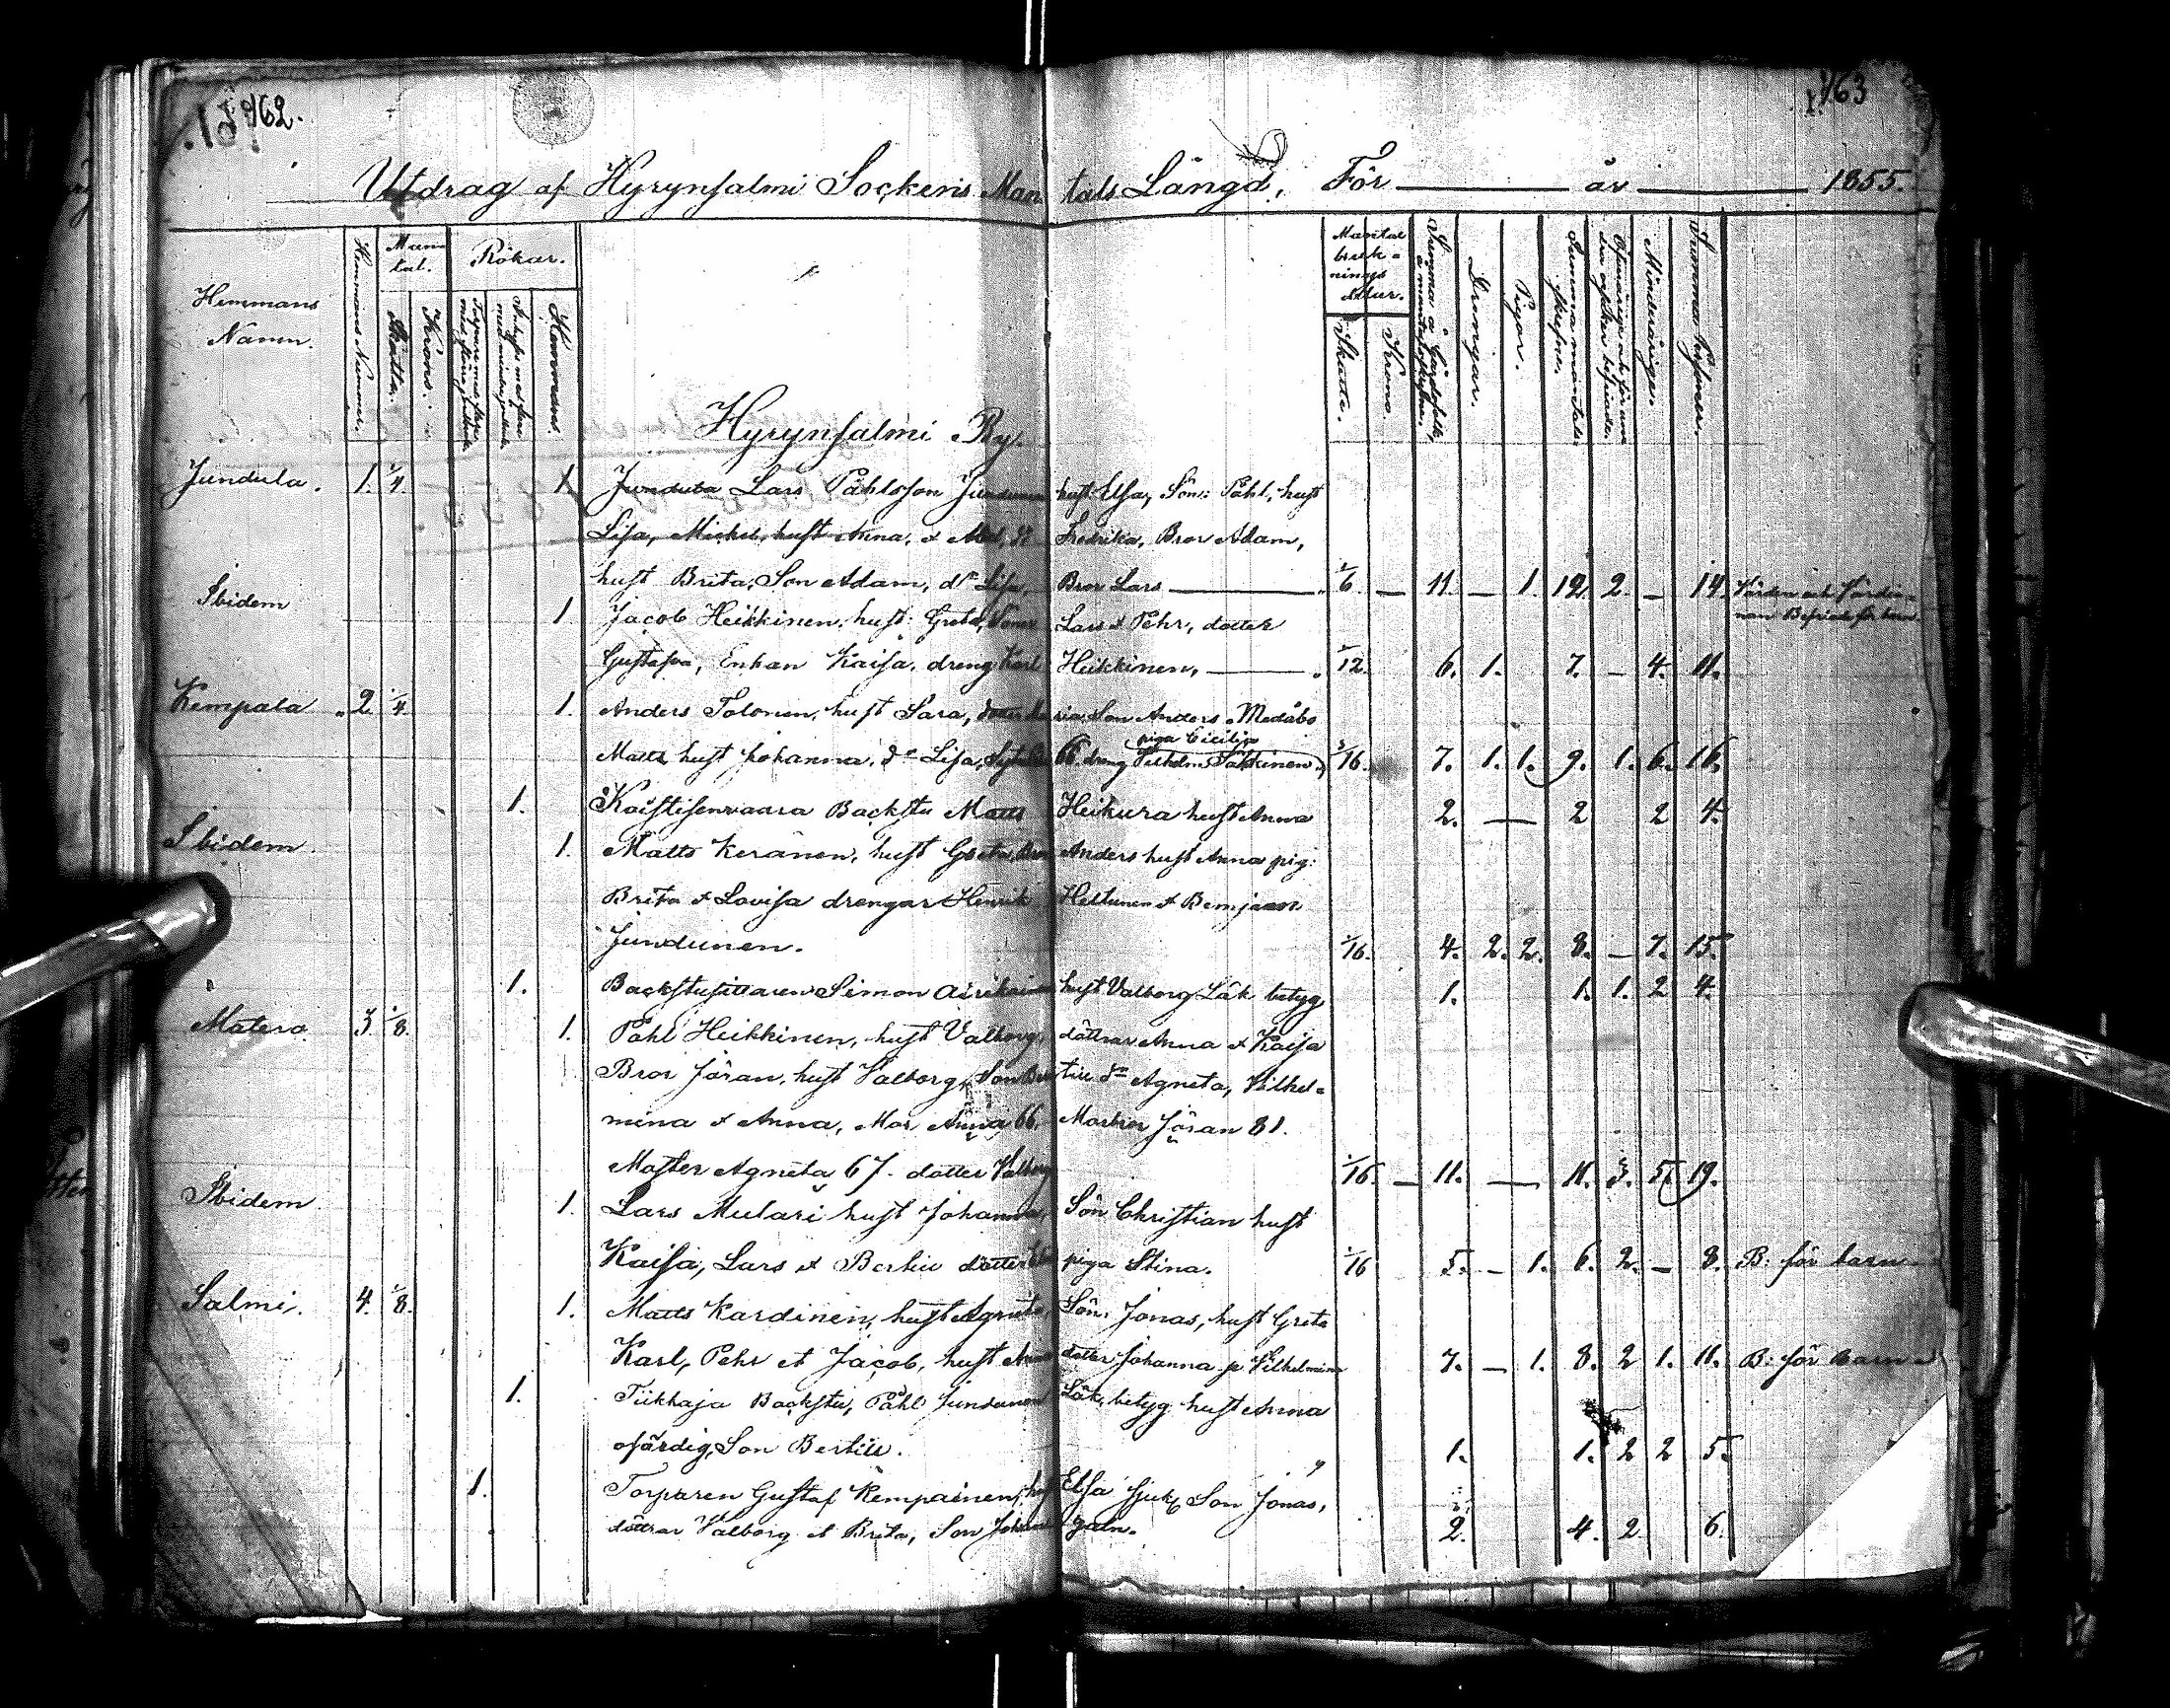 162.
163
Utdrag af Hyrynsalmi Sockens Mantals Längd, För år 1855.
Hemmans Namn.
Hemmans Nummer.
Mantal.
Skatte.
Krono.
Rökar.
Hemmans.
Mantal bruknings
Skatte.
Krono.
Drengar.
Pigor.
Summa mantals skrefne.
Minderårige.
Summa Personer.
Hyrynsalmi By.
Jundula. 1. 1/4. 1. Junduta Lars Påhlsson Jundunen hust Elsa, Sön: Påhl, hust
Lisa, Michel, hust Anna, & Fredrika, Bror Adam,
Ibidem hust Brita, Son Adam, dr Lisa, Bror Lars 1/6 — 11. — 1. 12. 2. — 14. Värden och Värdinnan Befriade för barn
1. Jacob Heikkinen, hust: Greta, Söner Lars & Pehr, dotter
Gustafva, Enkan Kaisa, dreng Karl Heikkinen, 1/12. 6. 1. 7. — 4. 11.
Kempala 2. 1/4. 1. Anders Tolonen, hust Sara, dotter Maria, Son Anders Medåbo
piga Cicilia
Matts hust Johanna, dr Lisa, 66 dreng Vilhelm 3/16. 7. 1. 1. 9. 1. 6. 16.
1. Koistisenvaara Backstu Matts Heikura hust Anna 2. — 2 2 4.
Ibidem. 1. Matts Keränen, hust Greta, Bror Anders hust Anna pig:
Brita & Lovisa drengar Henrik Heltunen & Bemjaan
Jundunen. 1/16. 4. 2. 2. 8. — 7. 15.
1. Backstusittaren Simon Airikainen hust Valborg Läk betyg 1. 1. 1. 2 4.
Matero 3. 1/8. 1. Påhl Heikkinen, hust Valborg, döttrar Anna & Kaisa
Bror Jöran, hust Valborg, Son Bertill dr Agneta, Vilhel=
mina & Anna, Mor Anna 66, Morbror Jöran 81.
Moster Agneta 67. dotter Valborg 1/16. — 11. — 11. 3. 5. 19.
Ibidem 1. Lars Mulari hust Johanna, Sön Christian hust
Kaisa, Lars & Bertil dotter piga Stina. 1/16 5. — 1. 6. 2. — 8. B: för barn
Salmi. 4. 1/8. 1. Matts Kardinen, hust Agneta, Sön: Jonas, hust Greta
Karl, Pehr et Jacob, hust Anna dotter Johanna p Vilhelmina 7. — 1. 8. 2 1. 11. B: för Barn
1. Tiikkaja Backstu, Påhl Jundunen Läk, betyg hust Anna
ofärdig, Son Bertill. 1. 1. 2 2 5.
1. Torparen Gustaf Kempainen, hust Elsa sjuk, Son Jonas,
döttrar Valborg et Brita, Son Johan galn. 2. 4. 2 6.